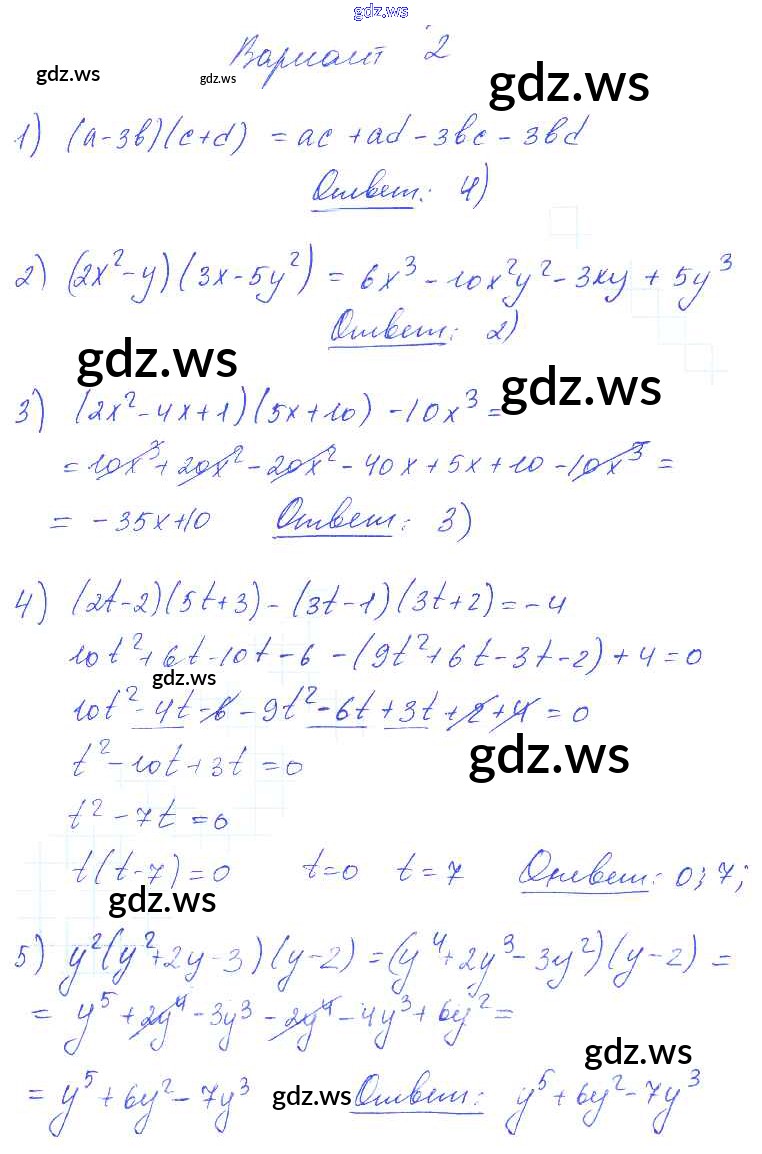 gdz.ws
Вариант 2
gdz.ws gdz.ws gdz.ws
1) (a-3b)(c+d) = ac + ad - 3bc - 3bd
Ответ: 4)
2) (2x² - y)(3x - 5y²) = 6x³ - 10x²y² - 3xy + 5y³
Ответ: 2)
gdz.ws gdz.ws
3) (2x² - 4x + 1)(5x + 10) - 10x³ =
= 10x³ + 20x² - 20x² - 40x + 5x + 10 - 10x³ =
= -35x + 10 Ответ: 3)
4) (2t-2)(5t+3) - (3t-1)(3t+2) = -4
10t² + 6t - 10t - 6 - (9t² + 6t - 3t - 2) + 4 = 0
gdz.ws
10t² - 4t - 6 - 9t² - 6t + 3t + 2 + 4 = 0
t² - 10t + 3t = 0
gdz.ws
t² - 7t = 0
t(t-7) = 0 t=0 t=7 Ответ: 0; 7;
gdz.ws
5) y²(y² + 2y - 3)(y - 2) = (y⁴ + 2y³ - 3y²)(y - 2) =
= y⁵ + 2y⁴ - 3y³ - 2y⁴ - 4y³ + 6y² =
gdz.ws
= y⁵ + 6y² - 7y³ gdz.ws Ответ: y⁵ + 6y² - 7y³